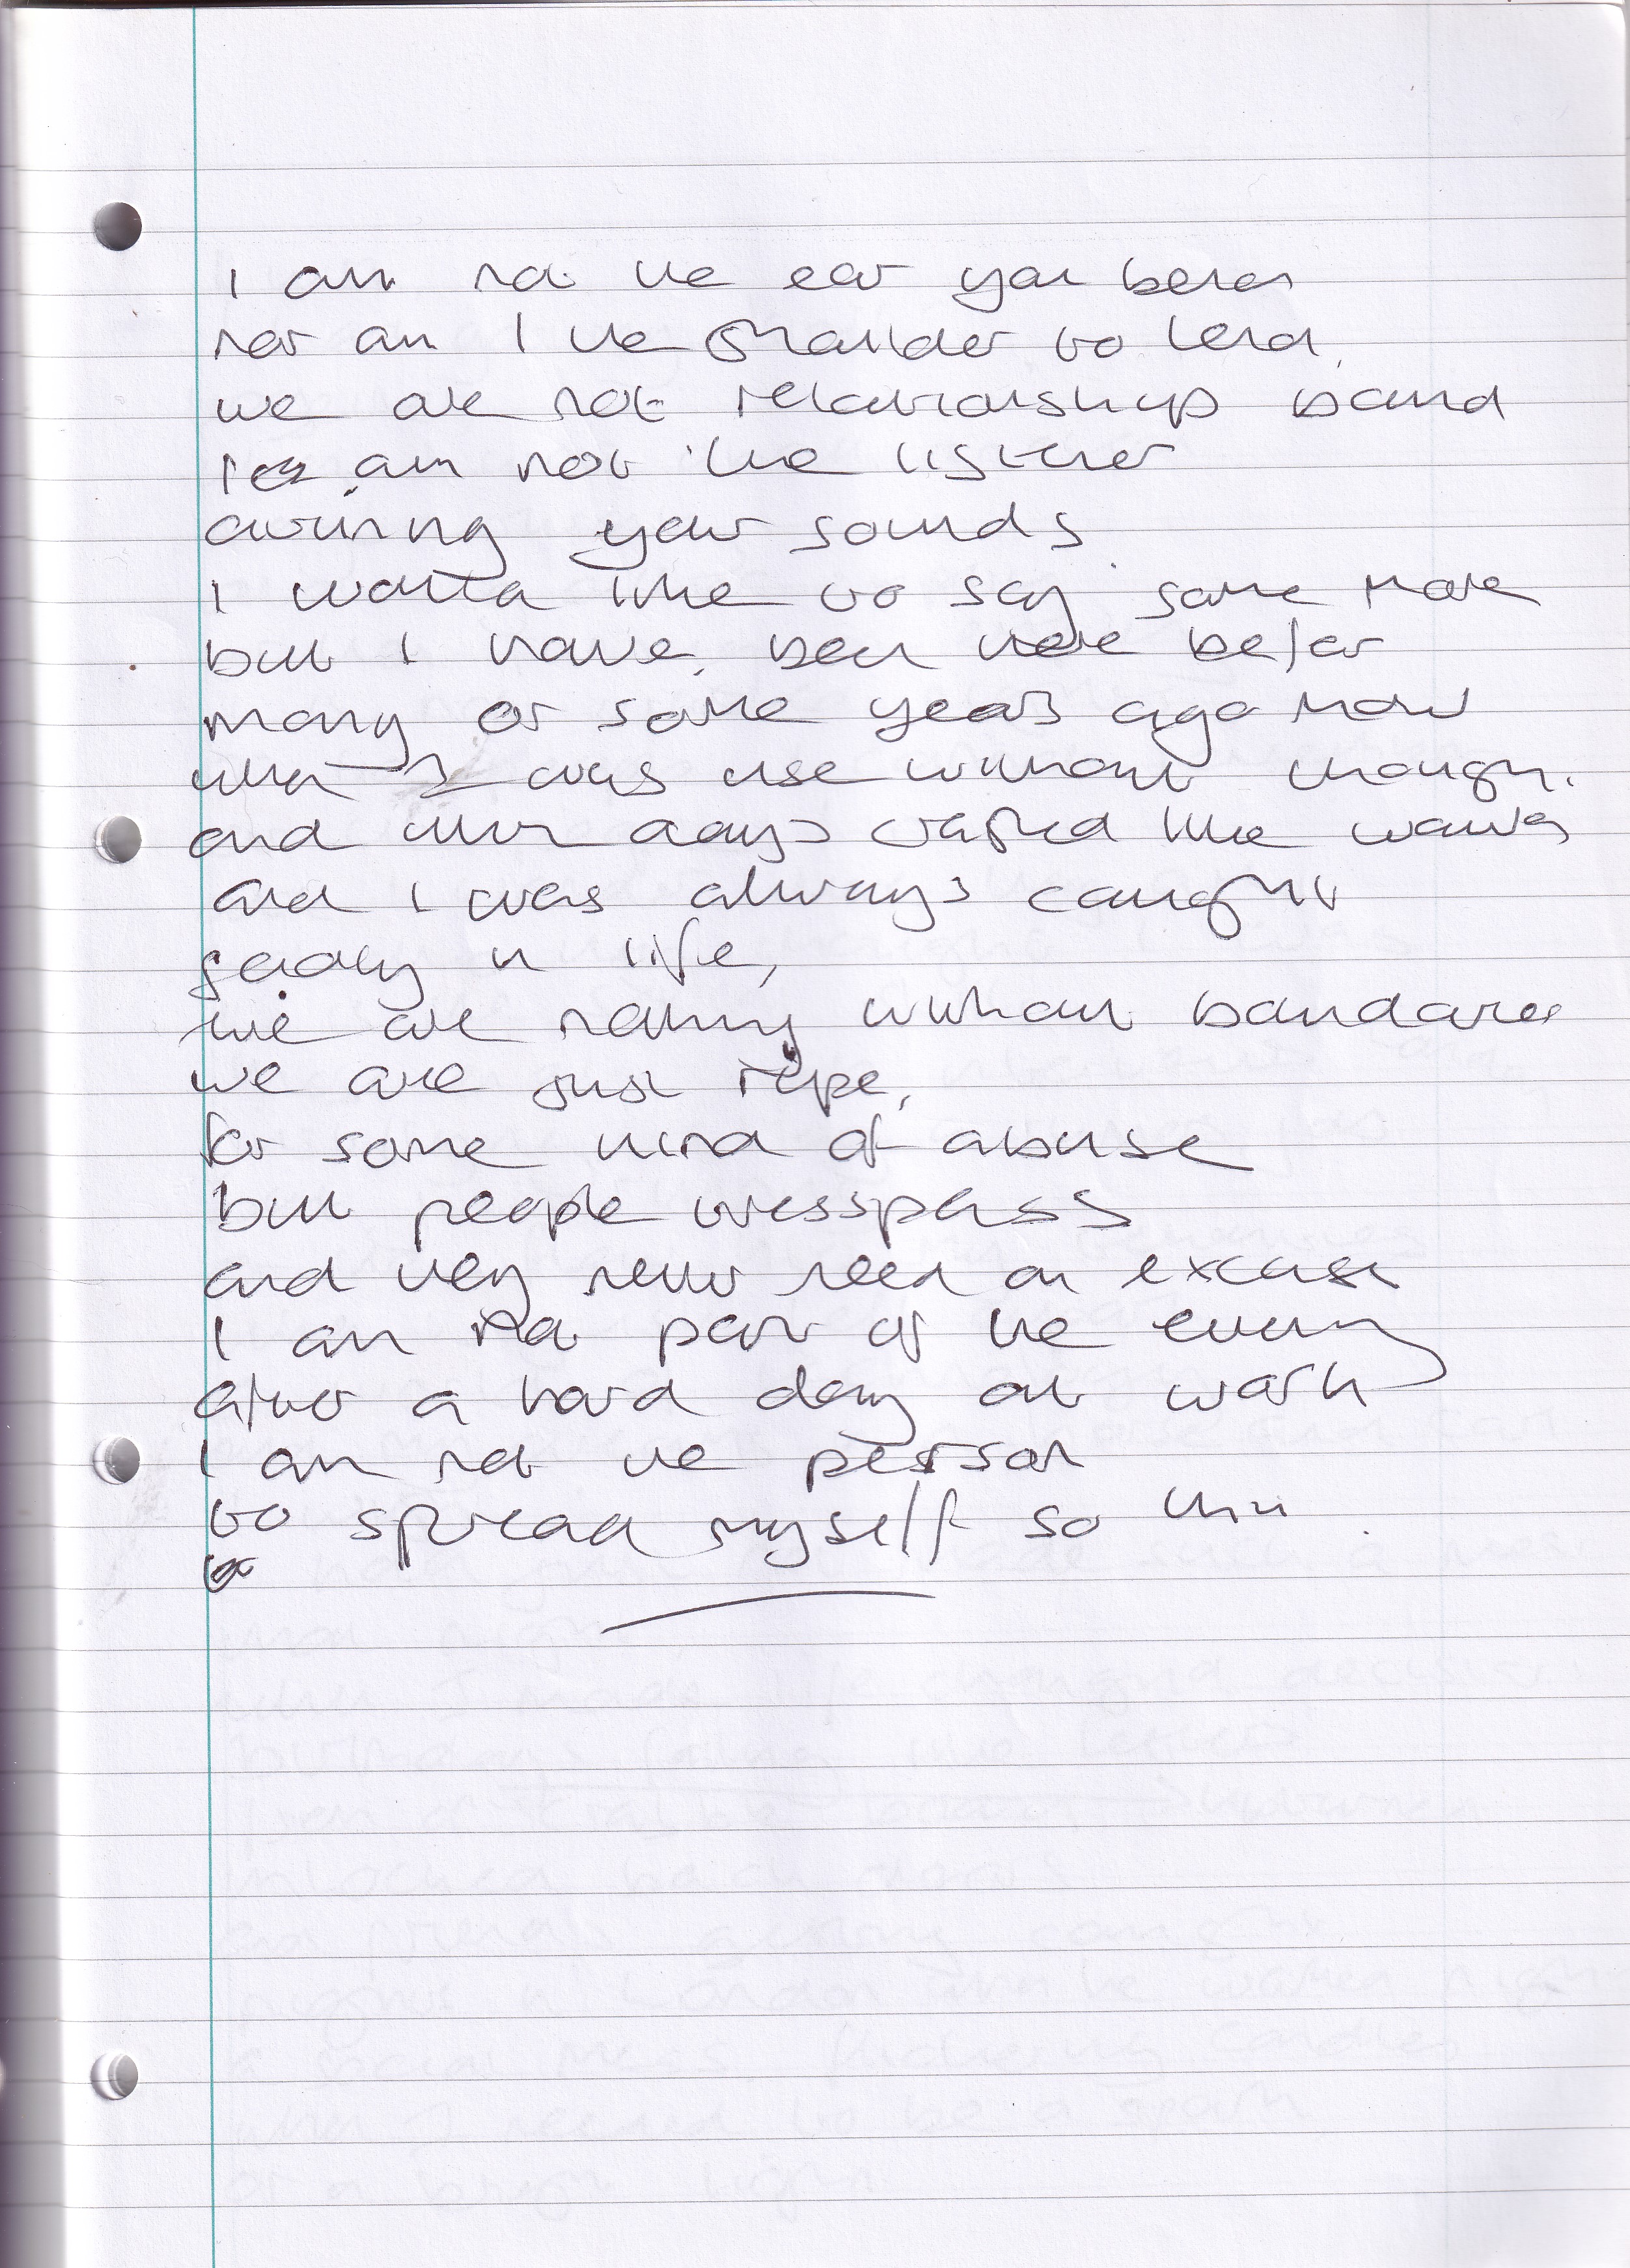 I am not the ear you
nor am I the shoulder to lend
we are not relationship bound
I am not the listener
during your sounds
I would like to say some more
but I have been here befor
many or some years ago now
when I was use without though.
and when days like
and I was always caught
in life,
we are nothing without boundaries
we are just ripe,
for some kind of abuse
but people tresspass
and they never need an excuse
I am not part of the evening
after a hard day at work
I am not the person
to spread myself so thin.